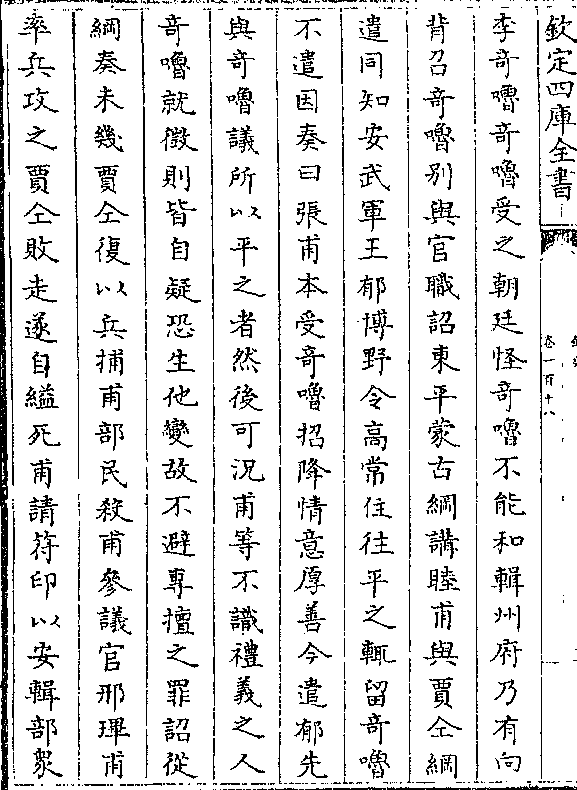 欽定四庫全書
卷一百十八
李竒嚕竒嚕受之朝廷怪竒嚕不能和輯州府乃有向
背召竒嚕別與官職詔東平蒙古綱講睦甫與賈仝綱
遣同知安武軍王郁博野令高常住往平之輒留竒嚕
不遣因奏曰張甫本受竒嚕招降情意厚善今遣郁先
與竒嚕議所以平之者然後可況甫等不識禮義之人
竒嚕就徵則皆自疑恐生他變故不避專擅之罪詔從
綱奏未幾賈仝復以兵捕甫部民殺甫參議官邢琿甫
率兵攻之賈仝敗走遂自縊死甫請符印以安輯部衆